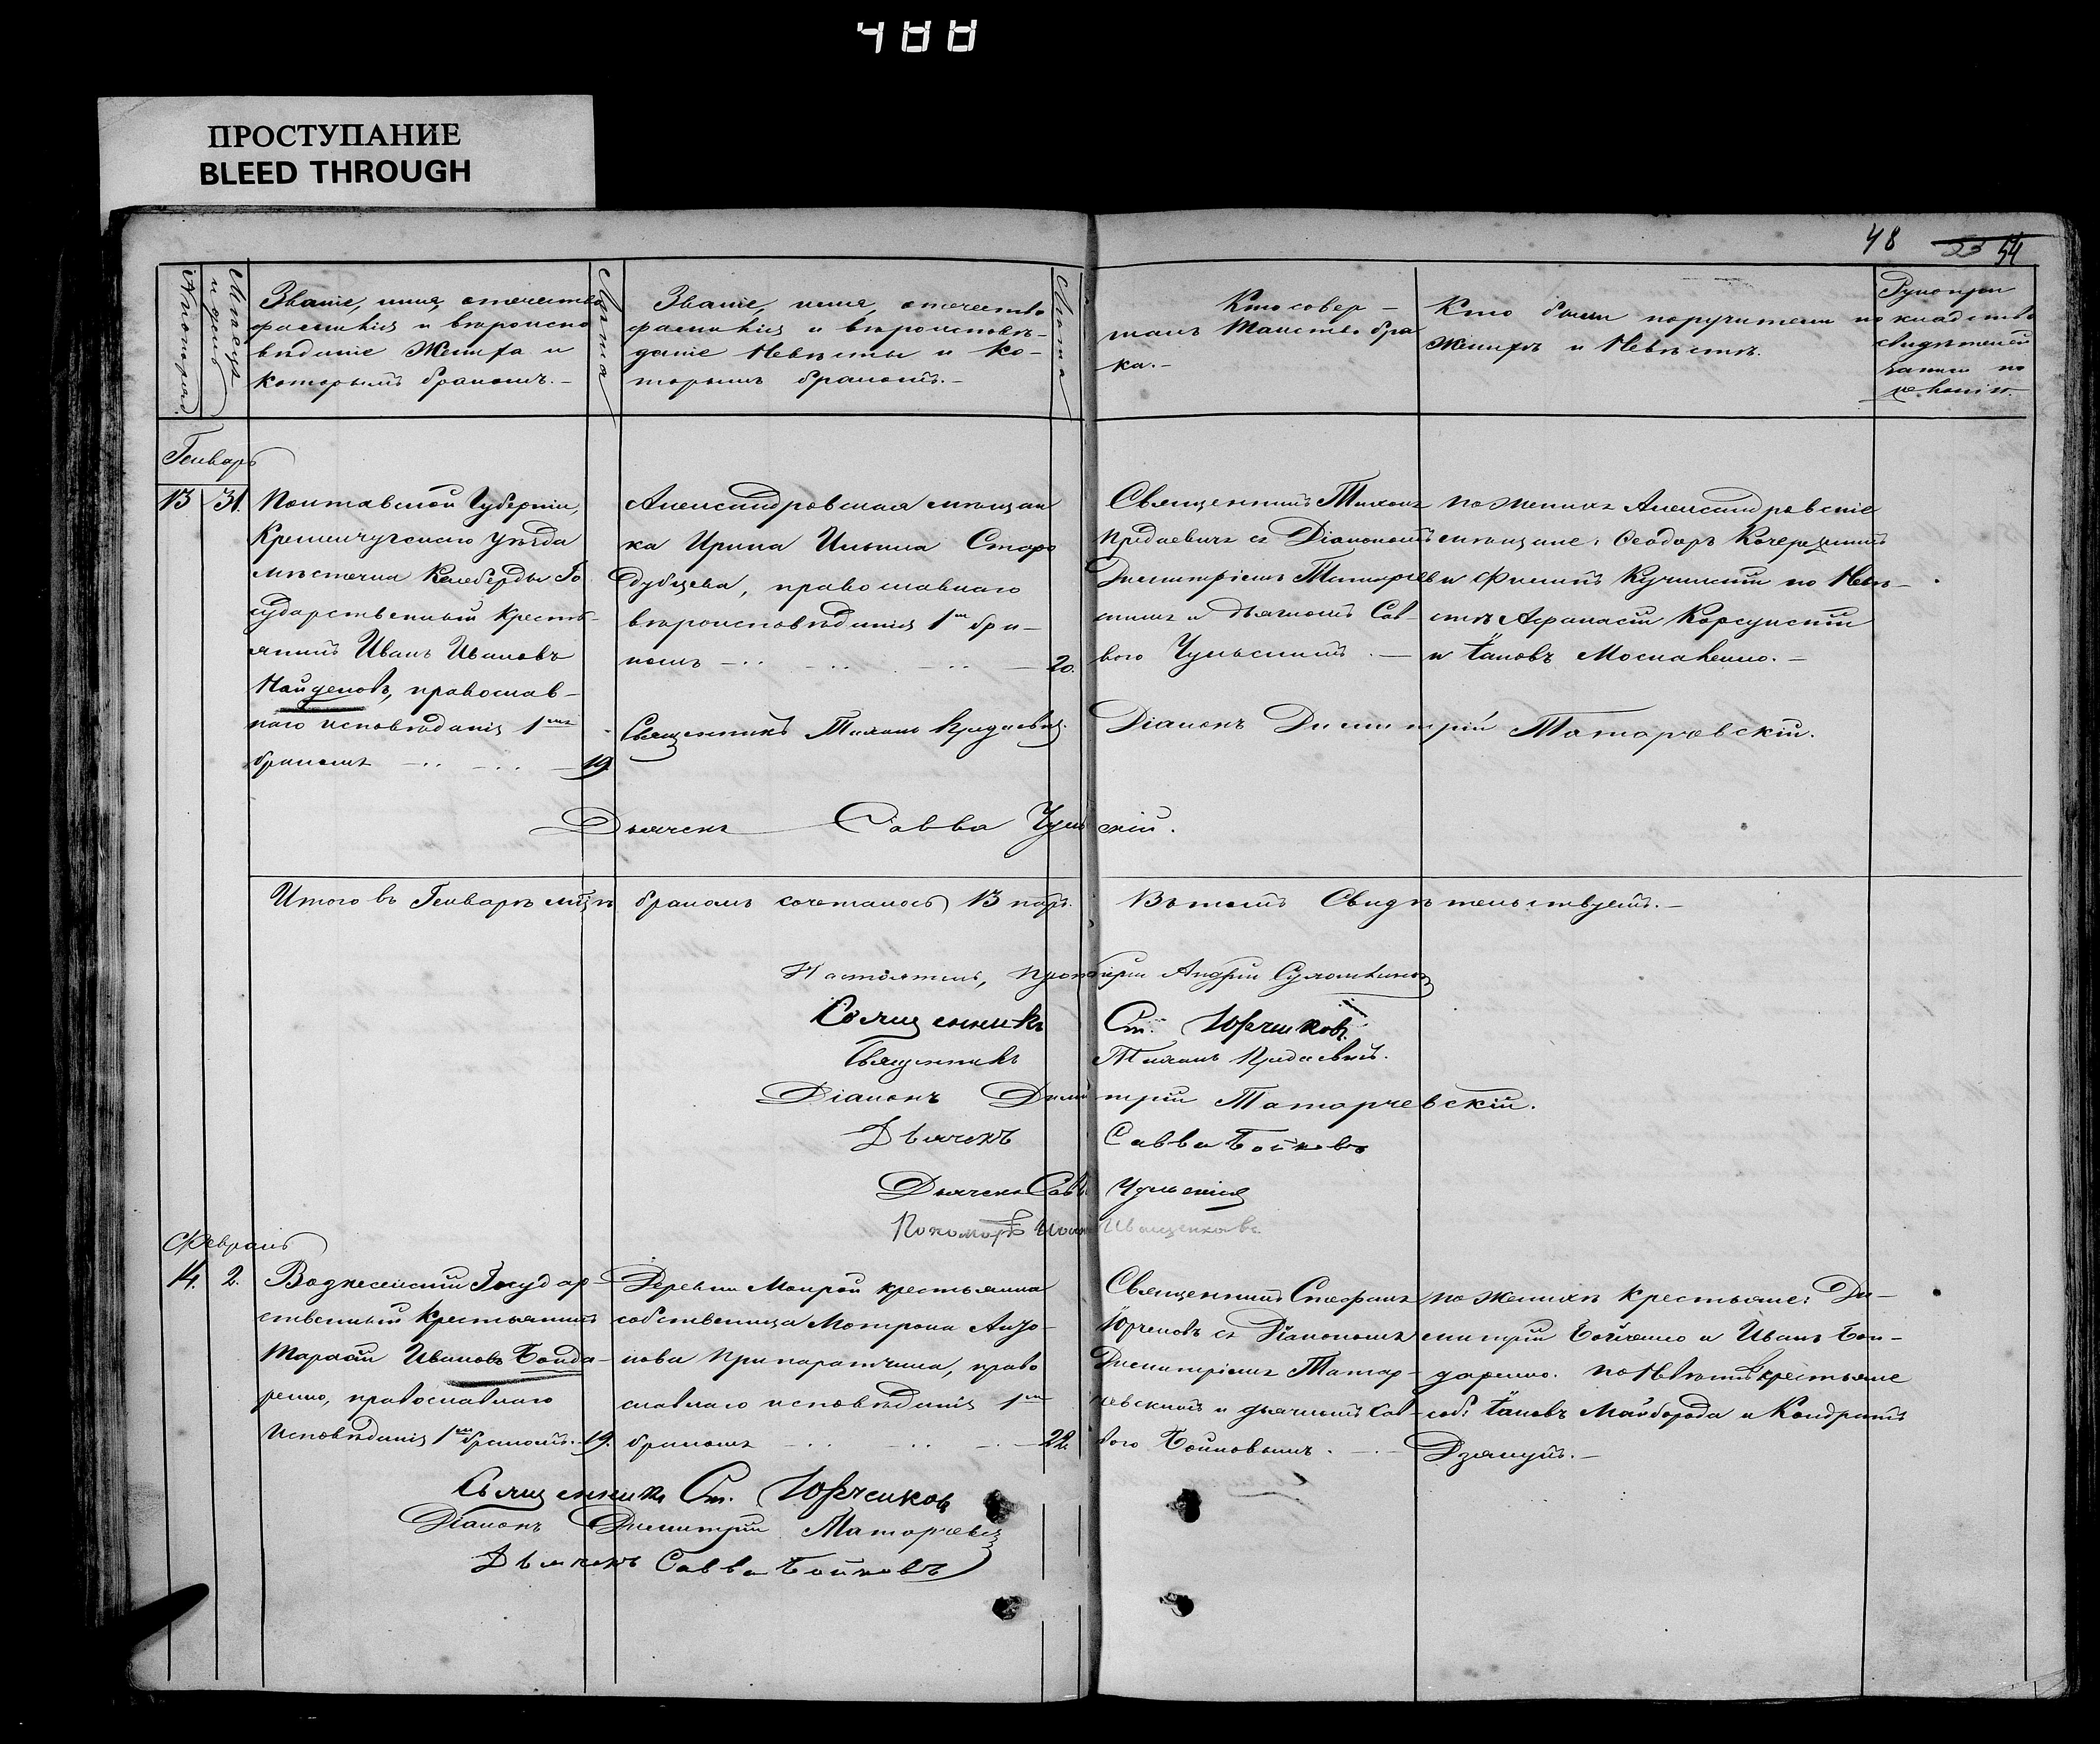 488
ПРОСТУПАНИЕ
BLEED THROUGH
48 53 54
Звание, имя, отечество
фамилія и вѣроиспо
вѣданіе Жениха и
которымъ бракомъ.-
Лѣта
Звание, имя, отечество
фамилія и вѣроисповѣ-
даніе Невѣсты и ко-
торымъ бракомъ.-
Лѣта
Кто совер-
шалъ Таинство бра
ка.-
Кто были поручители по
Женихѣ и Невѣстѣ.
Рукопри
кладство
свидѣтелей
записи по
желанію.
Генварь
13 31.
Полтавской Губерніи,
Кременчугскаго уѣзда
мѣстечка Келеберды Го
сударственный крестъ-
янинъ Иванъ Ивановъ
Найденовъ, православ-
наго исповѣданія 1мъ
бракомъ 19
Александровская мѣщан
ка Ирина Ильина Старо
дубцева, православнаго
вѣроисповѣданія 1мъ бра-
комъ 20.
Священникъ Тихонъ
Придаевичъ съ Діакономъ
Димитріемъ
и дьячкомъ Сав-
вою Чульскимъ.
по женихѣ Александровскіе
мѣщане: Ѳеодоръ
и Филипъ Кучинскій по Невѣ-
стѣ Афанасій Корсунскій
и Яковъ Москаленко.-
Священникъ Тихонъ Придаевичъ.
Діаконъ Димитрій Татарчевскій.
Дьячекъ Савва Чульскій.
Итого въ Генварѣ мцѣ бракомъ сочеталось 13 паръ. Въ томъ Свидѣтельствуемъ.-
Настоятель, Протоіерей Андрей
Священникъ Ст. Юрченковъ
Священникъ Тихонъ Придаевичъ.
Діаконъ Димитрій Татарчевскій.
Дьячекъ Савва Бойковъ
Дьячекъ Савва Чульскій
Пономарь Иващенковъ.
Февраль
14. 2.
Вознесенскій Государ-
ственный Крестьянинъ
Тарасій Ивановъ Бонда-
ренко, православнаго
исповѣданія 1мъ бракомъ. 19.
Деревни Мокрой крестьянка
собственница Матрона
православнаго исповѣданія 1мъ
бракомъ 22.
Священникъ Стефанъ
Юрченковъ съ Діакономъ
Димитріемъ Татар-
чевскимъ и дьячкомъ Сав-
вою Бойковымъ.
по женихѣ крестьяне: Ди-
митрій Бойченко и Иванъ Бон-
даренко. по Невѣстѣ крестьяне
соб: Яковъ Майборода и Кондратъ
Дзякунъ.-
Священникъ Ст. Юрченковъ
Діаконъ Димитрій Татарчевскій
Дьячекъ Савва Бойковъ